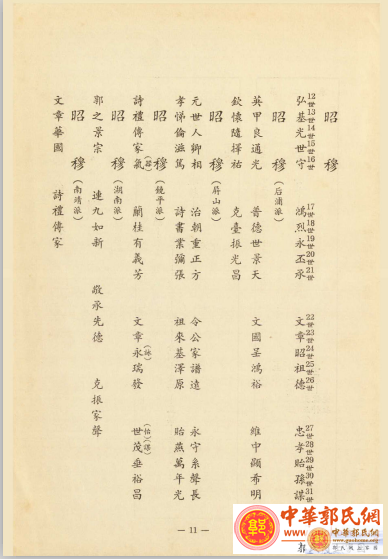 昭　穆
12世 13世 14世 15世 16世　17世 18世 19世 20世 21世　22世 23世 24世 25世 26世　27世 28世 29世 30世 31世
弘基光世守　鴻烈永丕承　文章昭祖德　忠孝貽孫謀
昭　穆（后浦派）
英甲良通光　普德世景天　文國呈鴻裕　維中顯希明
欽懷隨擇祐　克臺振光昌
昭　穆（屏山派）
元世人卿相　治朝重正方　令公家譜遠　永守系聲長
孝悌倫滋篤　詩書業彌張　祖來基澤原　貽燕萬年光
昭　穆（饒平派）
詩禮傳家氣　蘭桂有義芳　文章永（詠）瑞發　世茂垂裕昌
昭　穆（湖南派）
郭之景宗　連九如新　敬承先德　克振家聲
昭　穆（南靖派）
文章華國　詩禮傳家
— 11 —
中華郭氏網